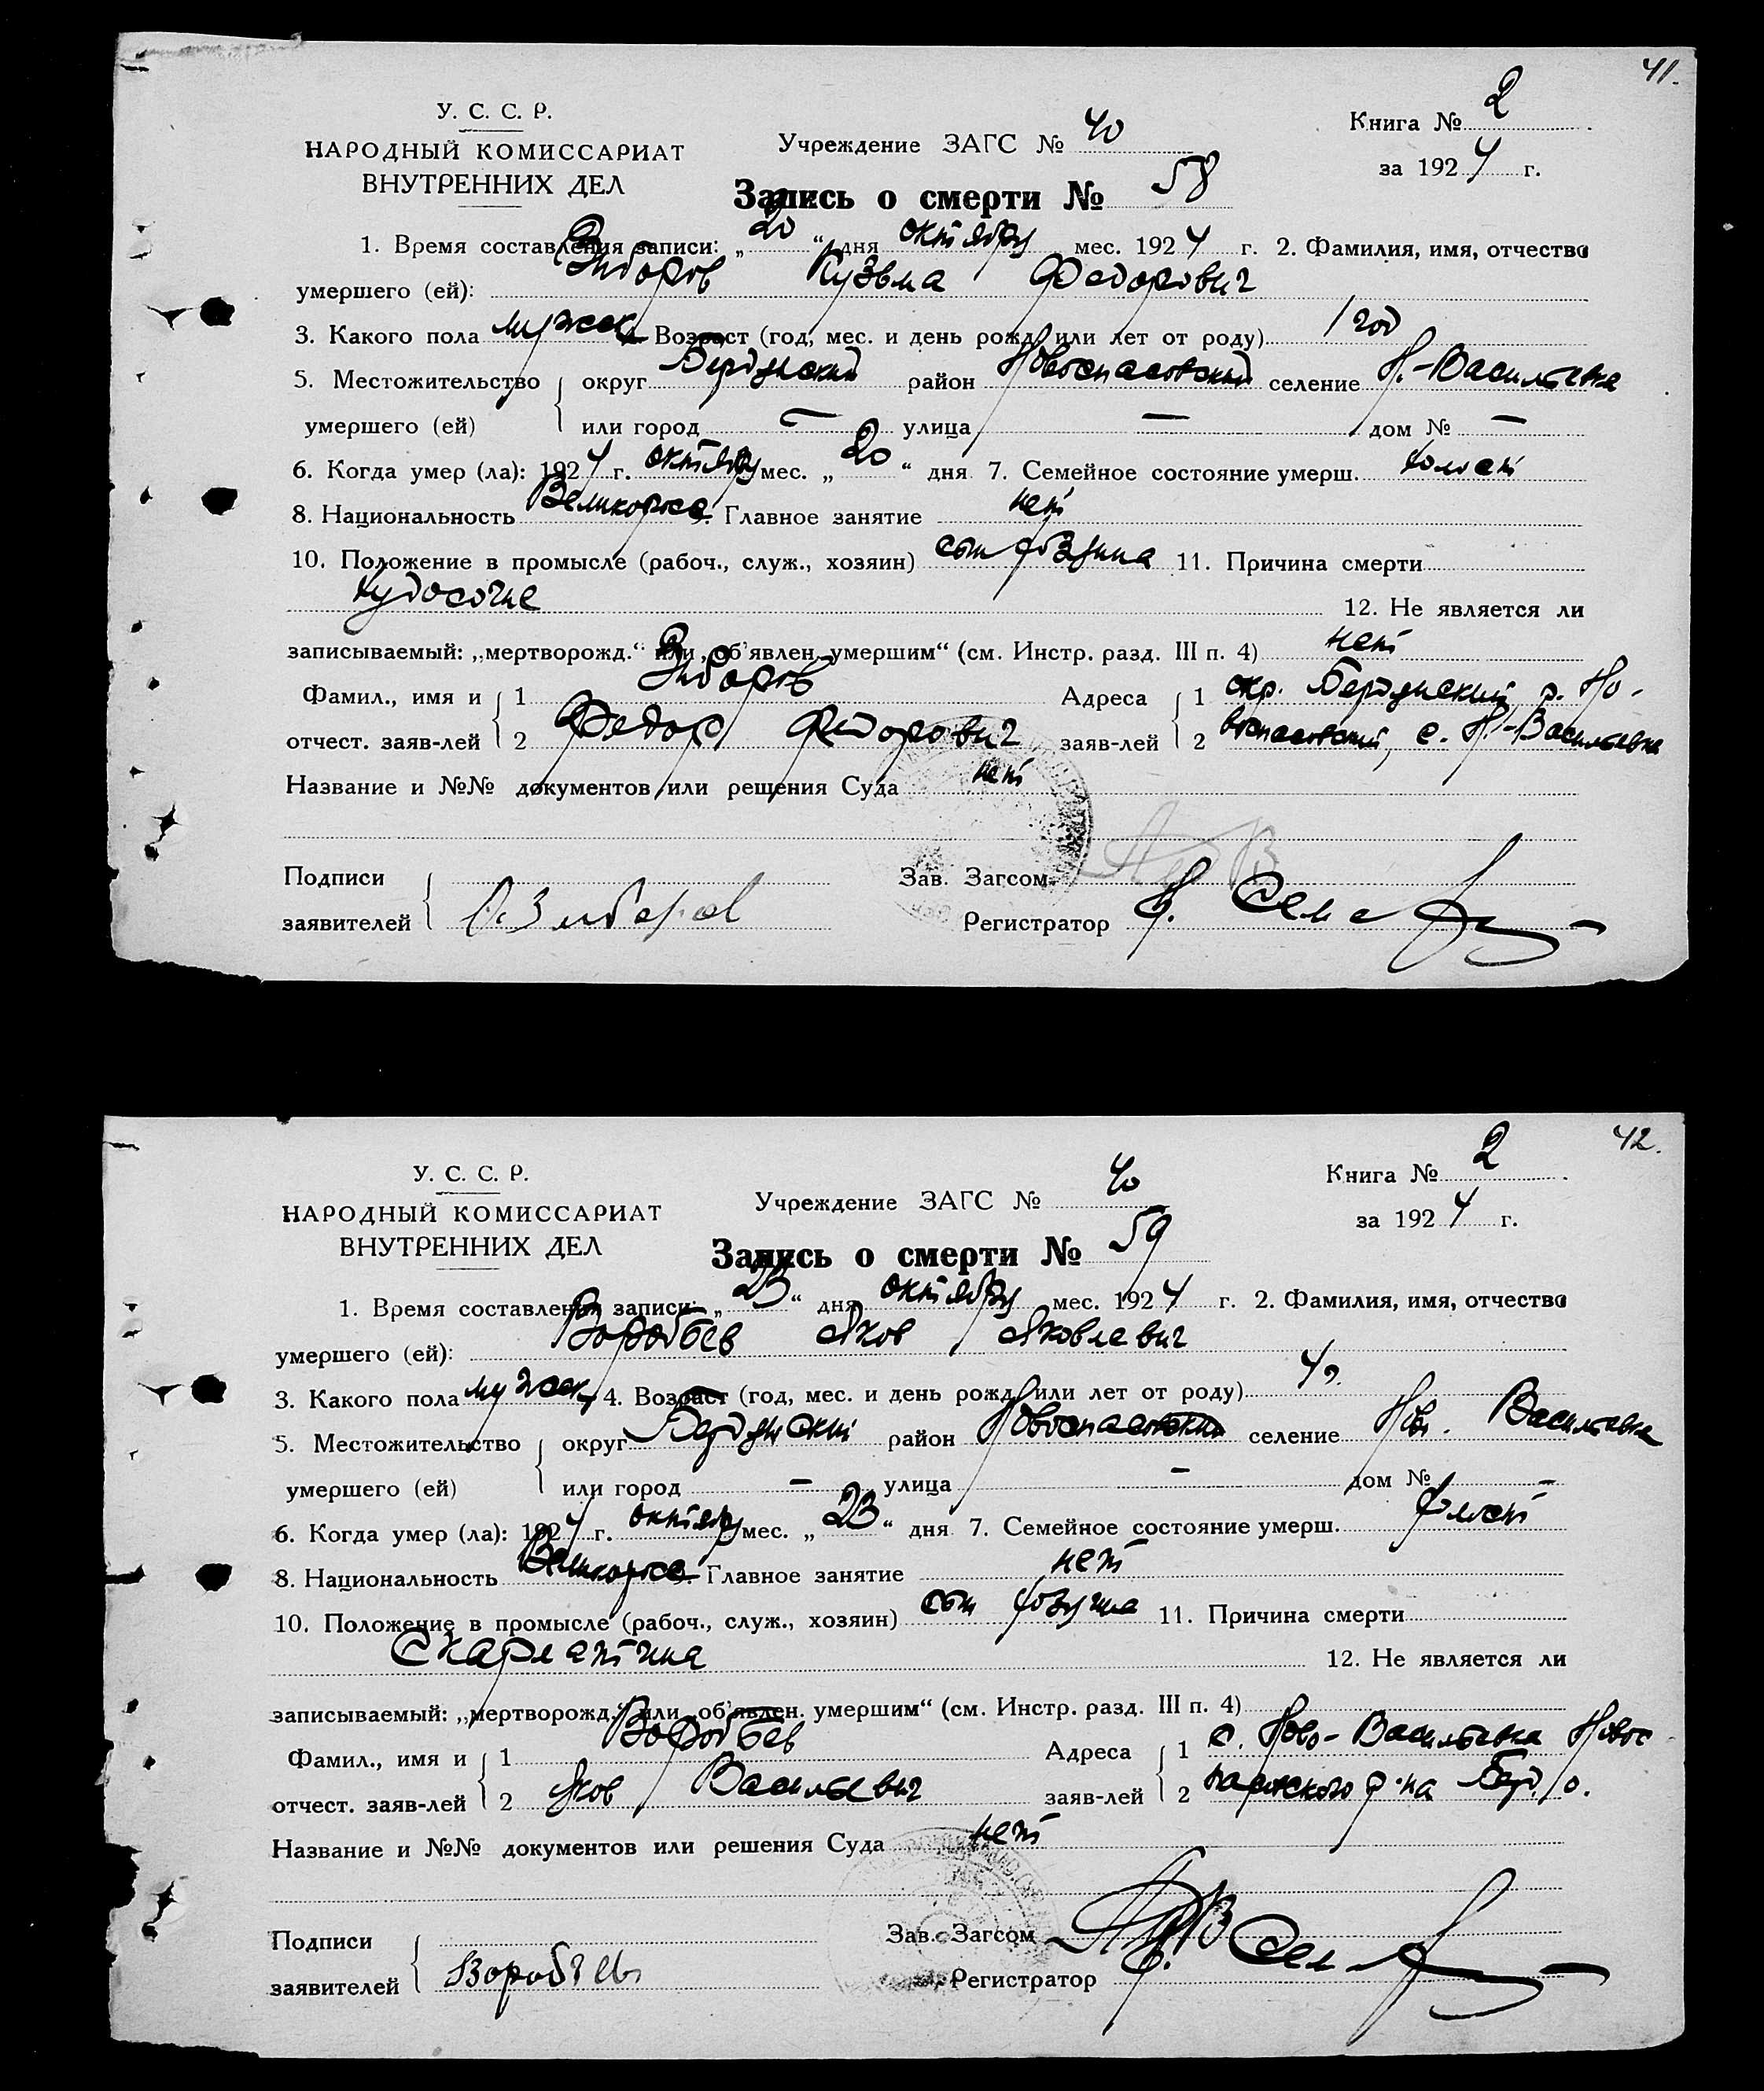 41.
У. С. С. Р.
НАРОДНЫЙ КОМИССАРИАТ
ВНУТРЕННИХ ДЕЛ
Учреждение ЗАГС № 40
Книга № 2
за 1924 г.
Запись о смерти № 58
1. Время составления записи: „20“ дня октября мес. 1924 г. 2. Фамилия, имя, отчество
умершего (ей): Зиборов Кузьма Федорович
3. Какого пола мужск. 4. Возраст (год, мес. и день рожд. или лет от роду) 1 год
5. Местожительство округ Бердянский район Новоспасовский селение Н.-Васильевка
умершего (ей) или город — улица — дом № —
6. Когда умер (ла): 1924 г. октября мес. „20“ дня 7. Семейное состояние умерш. холост
8. Национальность Великоросс 9. Главное занятие нет
10. Положение в промысле (рабоч., служ., хозяин) сын хозяина 11. Причина смерти
худосочие 12. Не является ли
записываемый: „мертворожд.“ или „об'явлен. умершим“ (см. Инстр. разд. III п. 4) нет
Фамил., имя и 1 Зиборов Адреса 1 окр. Бердянский, р. Но-
отчест. заяв-лей 2 Федор Федорович заяв-лей 2 воспасовский, с. Н.-Васильевка
Название и №№ документов или решения Суда нет
Подписи Зав. Загсом
заявителей Зиборов Регистратор
42.
У. С. С. Р.
НАРОДНЫЙ КОМИССАРИАТ
ВНУТРЕННИХ ДЕЛ
Учреждение ЗАГС № 40
Книга № 2
за 1924 г.
Запись о смерти № 59
1. Время составления записи: „23“ дня октября мес. 1924 г. 2. Фамилия, имя, отчество
умершего (ей): Воробьев Яков Яковлевич
3. Какого пола мужск. 4. Возраст (год, мес. и день рожд. или лет от роду) 4 г.
5. Местожительство округ Бердянский район Новоспасовский селение Нов. Васильевка
умершего (ей) или город — улица — дом № —
6. Когда умер (ла): 1924 г. октября мес. „23“ дня 7. Семейное состояние умерш. холост
8. Национальность Великоросс 9. Главное занятие нет
10. Положение в промысле (рабоч., служ., хозяин) сын хозяина 11. Причина смерти
Скарлатина 12. Не является ли
записываемый: „мертворожд.“ или „об'явлен. умершим“ (см. Инстр. разд. III п. 4)
Фамил., имя и 1 Воробьев Адреса 1 с. Ново-Васильевка Новос
отчест. заяв-лей 2 Яков Васильевич заяв-лей 2 пасовского р-на Берд. о.
Название и №№ документов или решения Суда нет
Подписи Зав. Загсом
заявителей Воробьев Регистратор